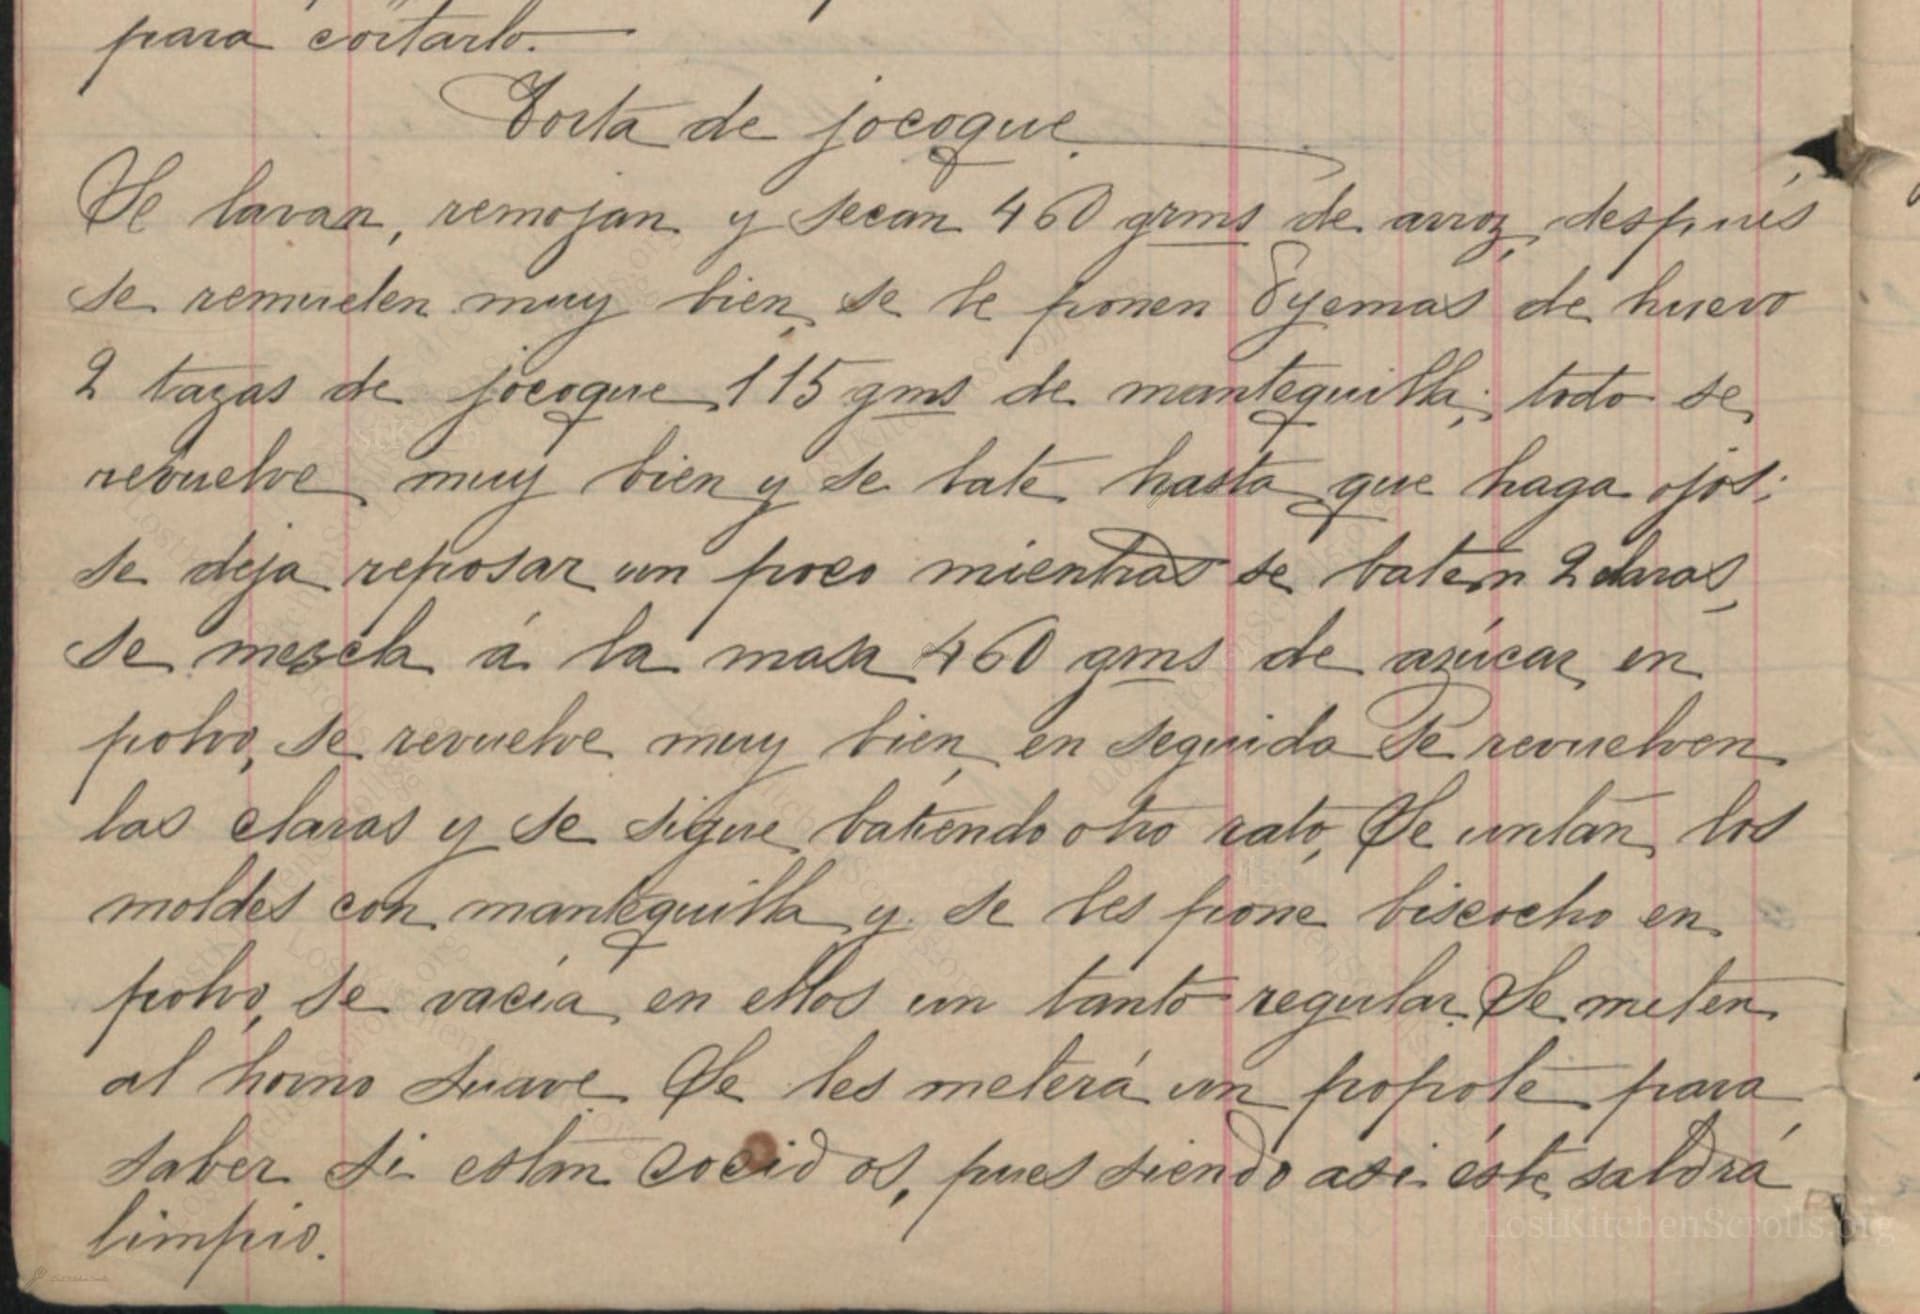 para cortarlo.
Torta de jocoque
Se lavan, remojan y secan 460 grms de arroz, después
se remuelen muy bien, se le ponen 8 yemas de huevo
2 tazas de jocoque, 115 gms de mantequilla; todo se
revuelve muy bien y se bate hasta que haga ojos;
se deja reposar un poco mientras se baten 2 claras,
se mezcla á la masa 460 gms de azúcar en
polvo, se revuelve muy bien, en seguida se revuelven
las claras y se sigue batiendo otro rato, Se untan los
moldes con mantequilla y se les pone biscocho en
polvo, se vacía en ellos un tanto regular. Se meten
al horno suave Se les meterá un popote para
saber si están cocidos, pues siendo asi éste saldrá
limpio.
LostKitchenScrolls.org